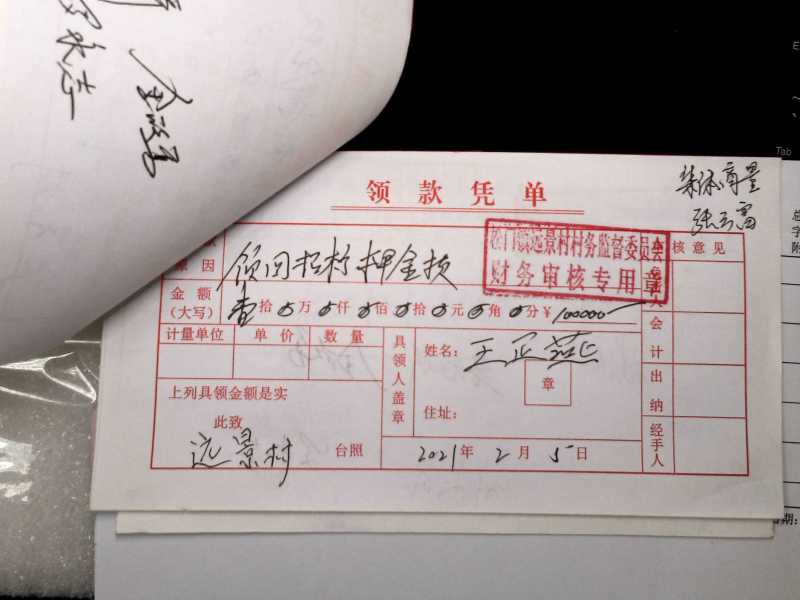 领款凭单
张云富
村务监督委员会
财务审核专用章
核意见
原因
领回招标押金款
金额
(大写)
壹拾0万0仟0佰0拾0元0角0分¥100000
计量单位 单价 数量
具领人盖章
姓名:王正燕
章
住址:
会计
出纳
经手人
上列具领金额是实
此致
远景村 台照
2021年2月5日
Tab